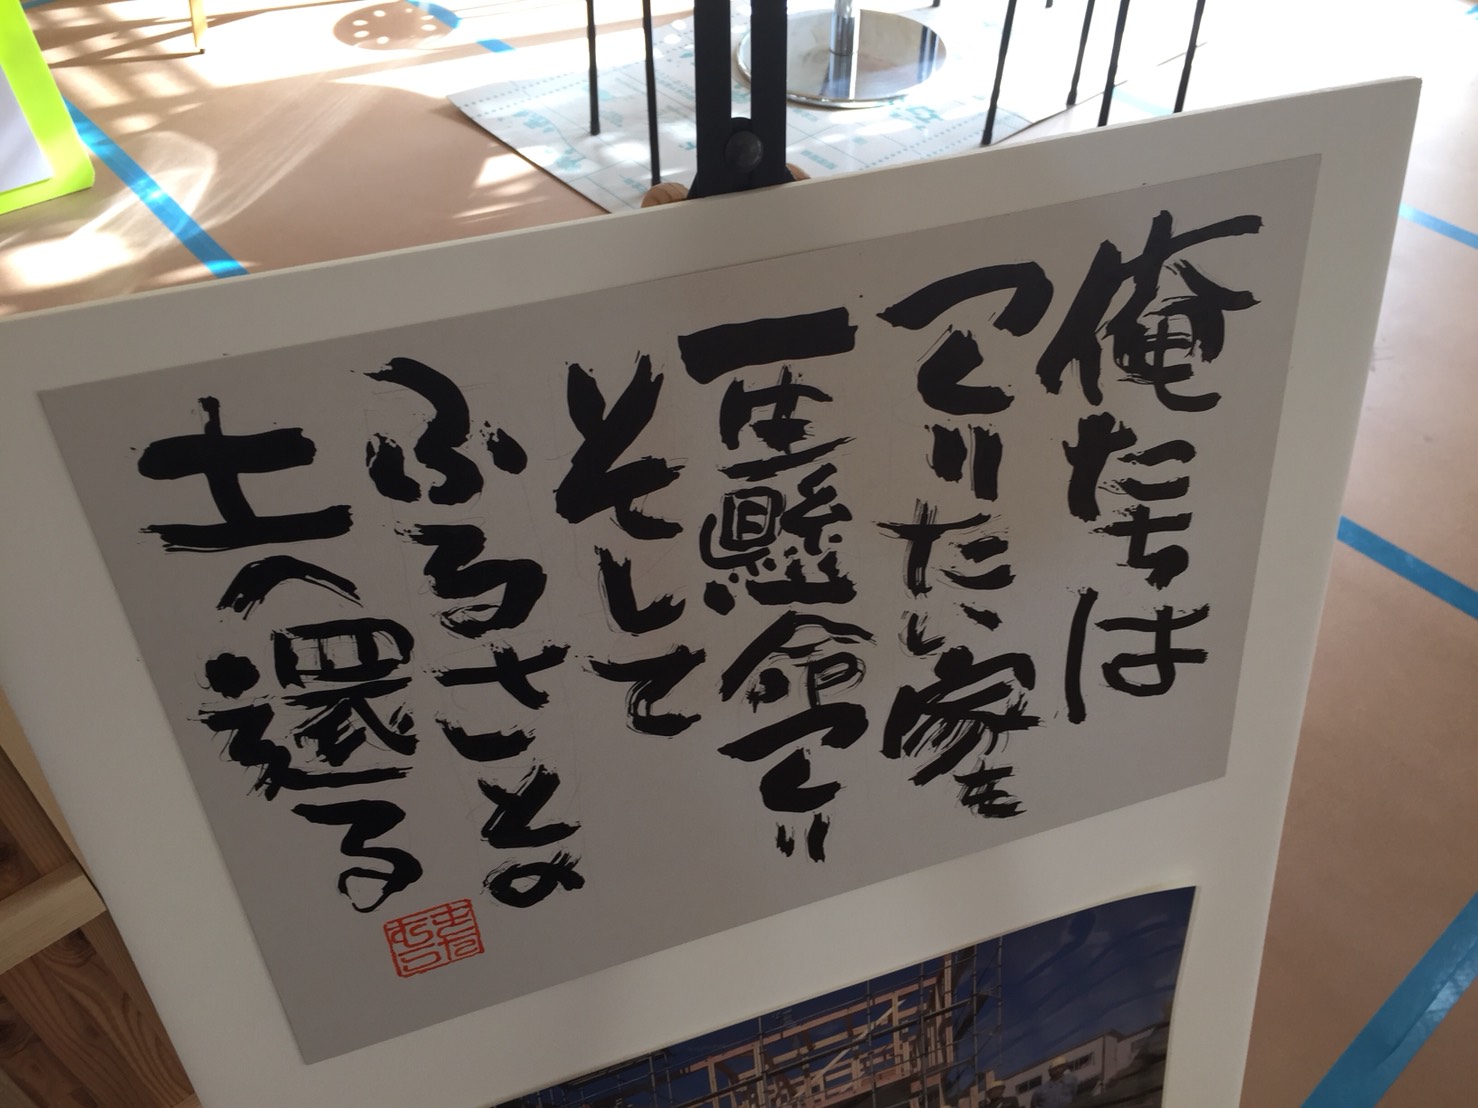 俺たちは
つくりたい家を
一生懸命つくり
そして
ふるさとの
土へ還る